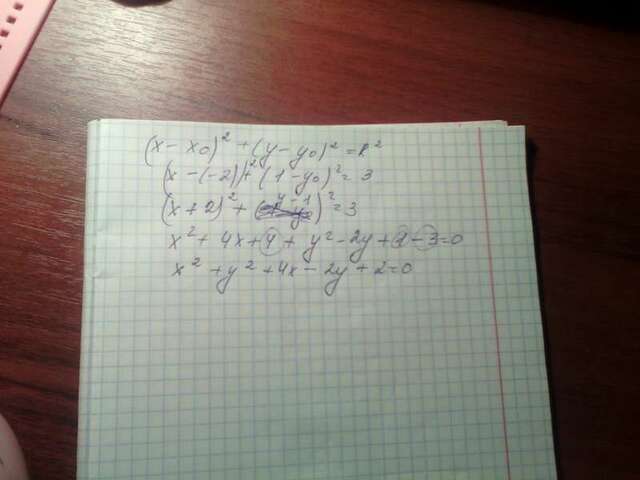 (x - x₀)² + (y - y₀)² = R²
(x - (-2))² + (1 - y₀)² = 3
(x + 2)² + (y - 1)² = 3
x² + 4x + 4 + y² - 2y + 1 - 3 = 0
x² + y² + 4x - 2y + 2 = 0